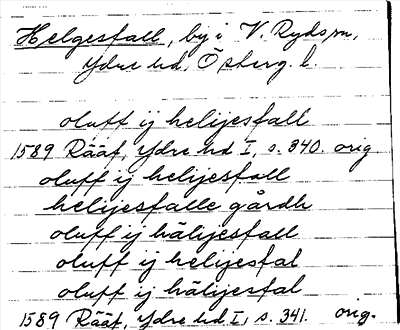 Helgesfall, by i V. Ryds sn,
Ydre hd, Österg. l.
oluff ij helijesfall
1589 Rääf, Ydre hd I, s. 340. orig.
oluff ij helijesfall
helijesfalle gårdh
oluff ij hälijesfall
oluff ij helijesfal
oluff ij hälijesfal
1589 Rääf, Ydre hd. I, s. 341. orig.